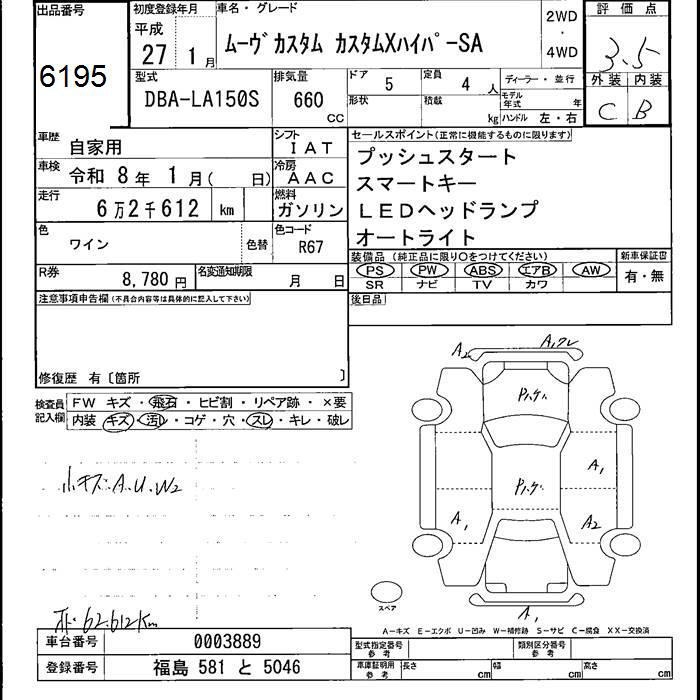 出品番号 6195
初度登録年月 平成 27 1月
車名・グレード
ムーヴ カスタム カスタムXハイパーSA
2WD
・
4WD
評価点
3.5
外装 内装
C B
型式 DBA-LA150S
排気量 660 CC
ドア 5
定員 4 人
ディーラー・並行
形状
積載 kg
モデル年式 年
ハンドル 左・右
車歴 自家用
シフト IAT
車検 令和 8年 1月( 日)
冷房 AAC
走行 6万2千612 km
燃料 ガソリン
色 ワイン 色替
色コード R67
R券 8,780円
名変通知期限 月 日
セールスポイント(正常に機能するものに限ります)
プッシュスタート
スマートキー
LEDヘッドランプ
オートライト
装備品 (純正品に限り〇をつけてください)
PS PW ABS エアB AW
SR ナビ TV カワ
新車保証書
有・無
後日品
注意事項申告欄(不具合内容等は具体的に記入して下さい)
修復歴 有〔箇所 〕
検査員記入欄
FW キズ・飛石・ヒビ割・リペア跡・×要
内装 キズ・汚レ・コゲ・穴・スレ・キレ・破レ
小キズ・A.U.W2
62.612Km
A2
A1
P.
P.
A1
A1
A2
スペア
A1
A−キズ E−エクボ U−凹み W−補修跡 S−サビ C−腐食 XX−交換済
車台番号 0003889
登録番号 福島 581 と 5046
型式指定番号 参考
類別区分番号 参考
車庫証明用 参考 長さ cm 幅 cm 高さ cm